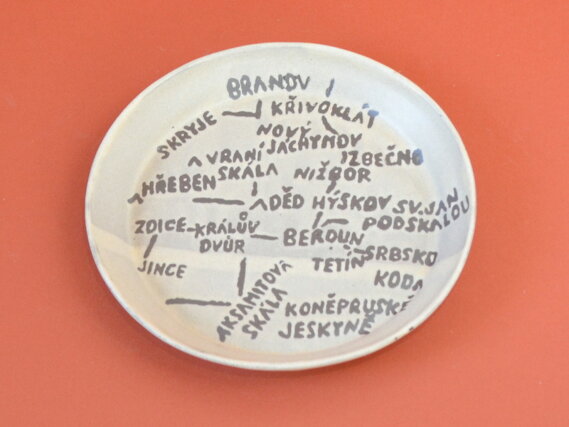 BRANDV
KŘIVOKLÁT
SKRYJE
NOVÝ
JÁCHYMOV
IZBEČNO
VRANÍ
SKÁLA
NIŽBOR
HŘEBEN
DĚD
HÝSKOV
SV.JAN
PODSKALOU
ZDICE
KRÁLŮV
DVŮR
BEROUN
TETÍN
SRBSKO
JINCE
KODA
AKSAMITOVÁ
SKÁLA
KONĚPRUSKÉ
JESKYNĚ